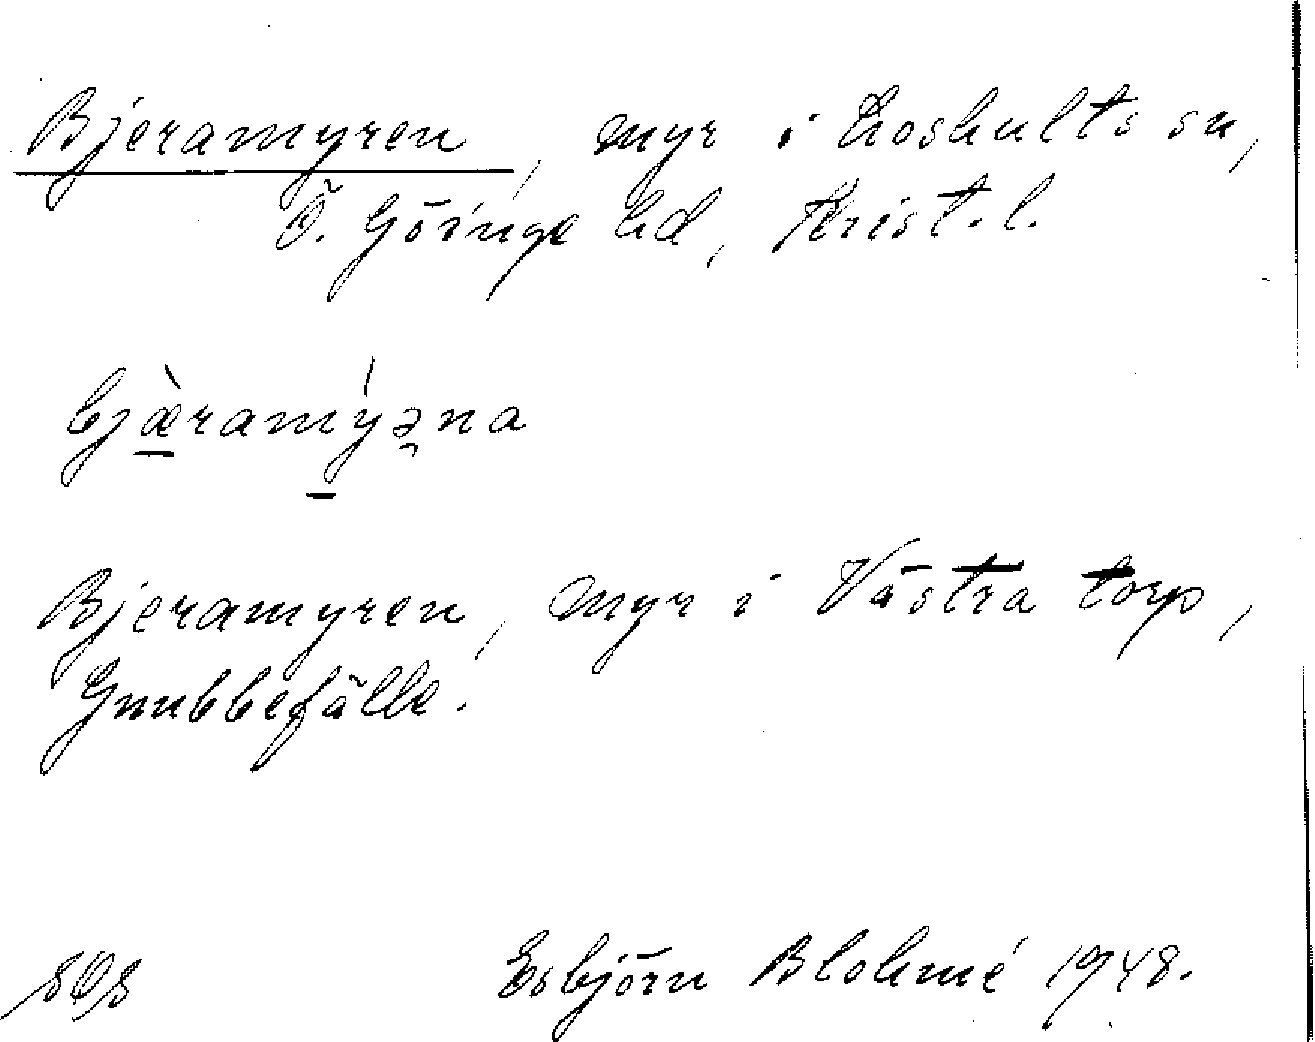 Bjeramyren, myr i Loshults sn,
Ö. Göinge hd, Krist. l.
bjæ̀ramýə̯na
Bjeramyren, myr i Västra torp,
Gnubbefälle.
Esbjörn Blohmé 1948.